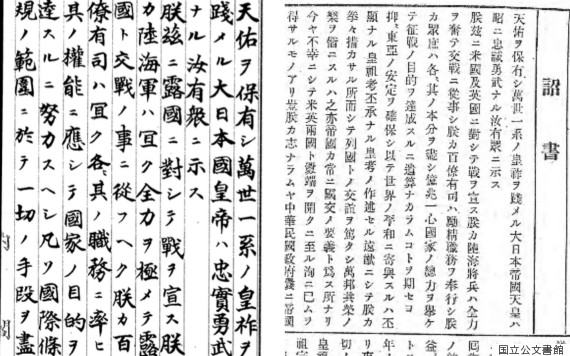 詔書
天佑ヲ保有シ萬世一系ノ皇祚ヲ踐メル大日本帝國天皇ハ
昭ニ忠誠勇武ナル汝有衆ニ示ス
朕茲ニ米國及英國ニ對シテ戰ヲ宣ス朕カ陸海將兵ハ全力
ヲ奮テ交戰ニ從事シ朕カ百僚有司ハ勵精職務ヲ奉行シ朕
カ衆庶ハ各々其ノ本分ヲ盡シ億兆一心國家ノ總力ヲ擧ケ
テ征戰ノ目的ヲ達成スルニ遺算ナカラムコトヲ期セヨ
抑々東亞ノ安定ヲ確保シ以テ世界ノ平和ニ寄與スルハ丕
顯ナル皇祖考丕承ナル皇考ノ作述セル遠猷ニシテ朕カ
拳々措カサル所而シテ列國トノ交誼ヲ篤クシ萬邦共榮ノ
樂ヲ偕ニスルハ之亦帝國カ常ニ國交ノ要義ト爲ス所ナリ
今ヤ不幸ニシテ米英兩國ト釁端ヲ開クニ至ル洵ニ已ムヲ
得サルモノアリ豈朕カ志ナラムヤ中華民國政府曩ニ帝國
天佑ヲ保有シ萬世一系ノ皇祚ヲ
踐メル大日本國皇帝ハ忠實勇武
ナル汝有衆ニ示ス
朕茲ニ露國ニ對シテ戰ヲ宣ス朕
カ陸海軍ハ宜ク全力ヲ極メテ露
國ト交戰ノ事ニ從フヘク朕カ百
僚有司ハ宜ク各々其ノ職務ニ率ヒ
其ノ權能ニ應シテ國家ノ目的ヲ
達スルニ努力スヘシ凡ソ國際條
規ノ範圍ニ於テ一切ノ手段ヲ盡
内閣
国立公文書館